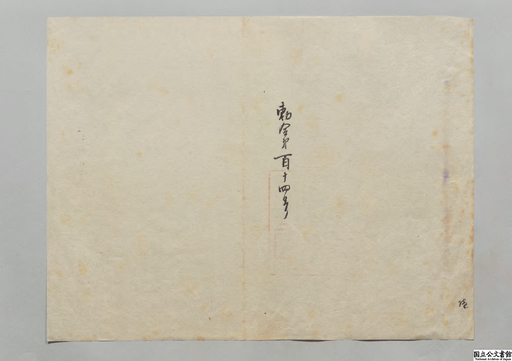 勅令第百十四号
国立公文書館
National Archives of Japan